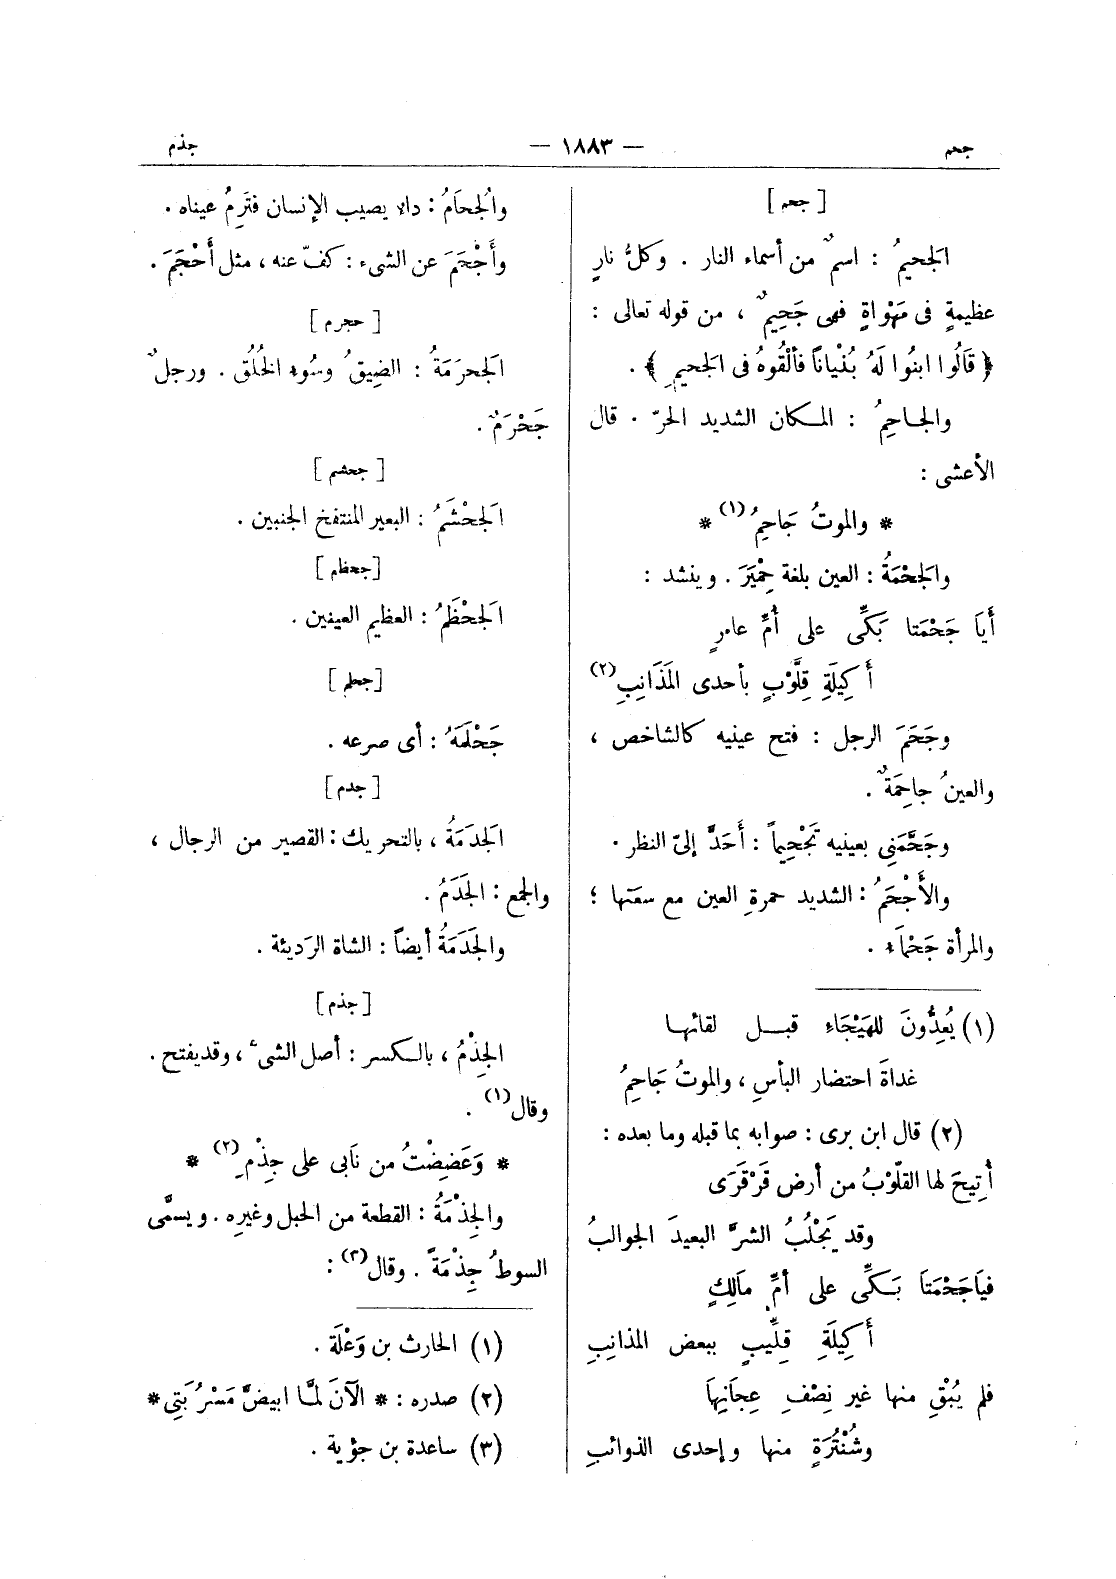 جحم — ١٨٨٣ — جذم
[ جحم ]
الجحيمُ : اسمٌ من أسماء النار . وكلُّ نارٍ
عظيمةٍ فى مَهْواةٍ فهى جَحِيمٌ ، من قوله تعالى :
﴿ قَالُوا ابنُوا لَهُ بُنْياناً فألْقُوهُ فى الجَحيمِ ﴾ .
والجاحِمُ : المكان الشديد الحرّ . قال
الأعشى :
* والموتُ جَاحِمُ (١) *
والجَحْمَةُ : العين بلغة حِمْيَرَ . وينشد :
أَيَا جَحْمَتا بَكِّى على أُمِّ عامرٍ
أَكِيلَةِ قِلَّوْبٍ بأحدى المَذَانِبِ (٢)
وجَحَمَ الرجل : فتح عينيه كالشاخص ،
والعينُ جاحِمَةٌ .
وجَحَّمَنِى بعينيه تَجْحِيماً : أَحَدَّ إلىّ النظر .
والأَجْحَمُ : الشديد حمرةِ العين مع سعَتها ؛
والمرأة جَحْمَاء .
(١) يُعِدُّونَ للهَيْجَاءِ قبل لقائها
غداةَ احتضار البأسِ ، والموتُ جَاحِمُ
(٢) قال ابن برى : صوابه بما قبله وما بعده :
أُتِيحَ لها القلَّوْبُ من أرض قَرْقَرَى
وقد يَجْلُبُ الشرَّ البعيدَ الجوالبُ
فيَاجَحْمَتَا بَكِّى على أمِّ مَالِكٍ
أَكِيلَةِ قِلِّيبٍ ببعض المذانِبِ
فلم يُبْقِ منها غير نِصْفِ عِجَانِهَا
وشُنْتُرَةٍ منها وإحدى الذوائبِ
والُجحَامُ : دالا يصيب الإنسان فتَرِمُ عيناه .
وأَجْحَمَ عن الشىء : كفّ عنه ، مثل أَحْجَمَ .
[ حجرم ]
الجَحرَمَةُ : الضِيقُ وسُوء الخُلُق . ورجلٌ
جَحْرَمٌ .
[ جحشم ]
الجَحْشَمُ : البعير المنتفخ الجنبين .
[ جحظم ]
الجَحْظَمُ : العظيم العينين .
[ جحلم ]
جَحْلَمَهُ : أى صرعه .
[ جدم ]
الجَدَمَةُ ، بالتحريك : القصير من الرجال ،
والجمع : الجَدَمُ .
والجَدَمَةُ أيضاً : الشاة الرَديئة .
[ جذم ]
الجِذْمُ ، بالكسر : أصل الشىء ، وقد يفتح .
وقال (١) .
* وَعَضِضْتُ من نَابى على جِذْمِ (٢) *
والجِذْمَةُ : القطعة من الحبل وغيرِه . ويسمَّى
السوطُ جِذْمَةً . وقال (٣) :
(١) الحارث بن وَعْلَة .
(٢) صدره : * الآنَ لمَّا ابيضَّ مَسْرُبَتِى *
(٣) ساعدة بن جؤية .